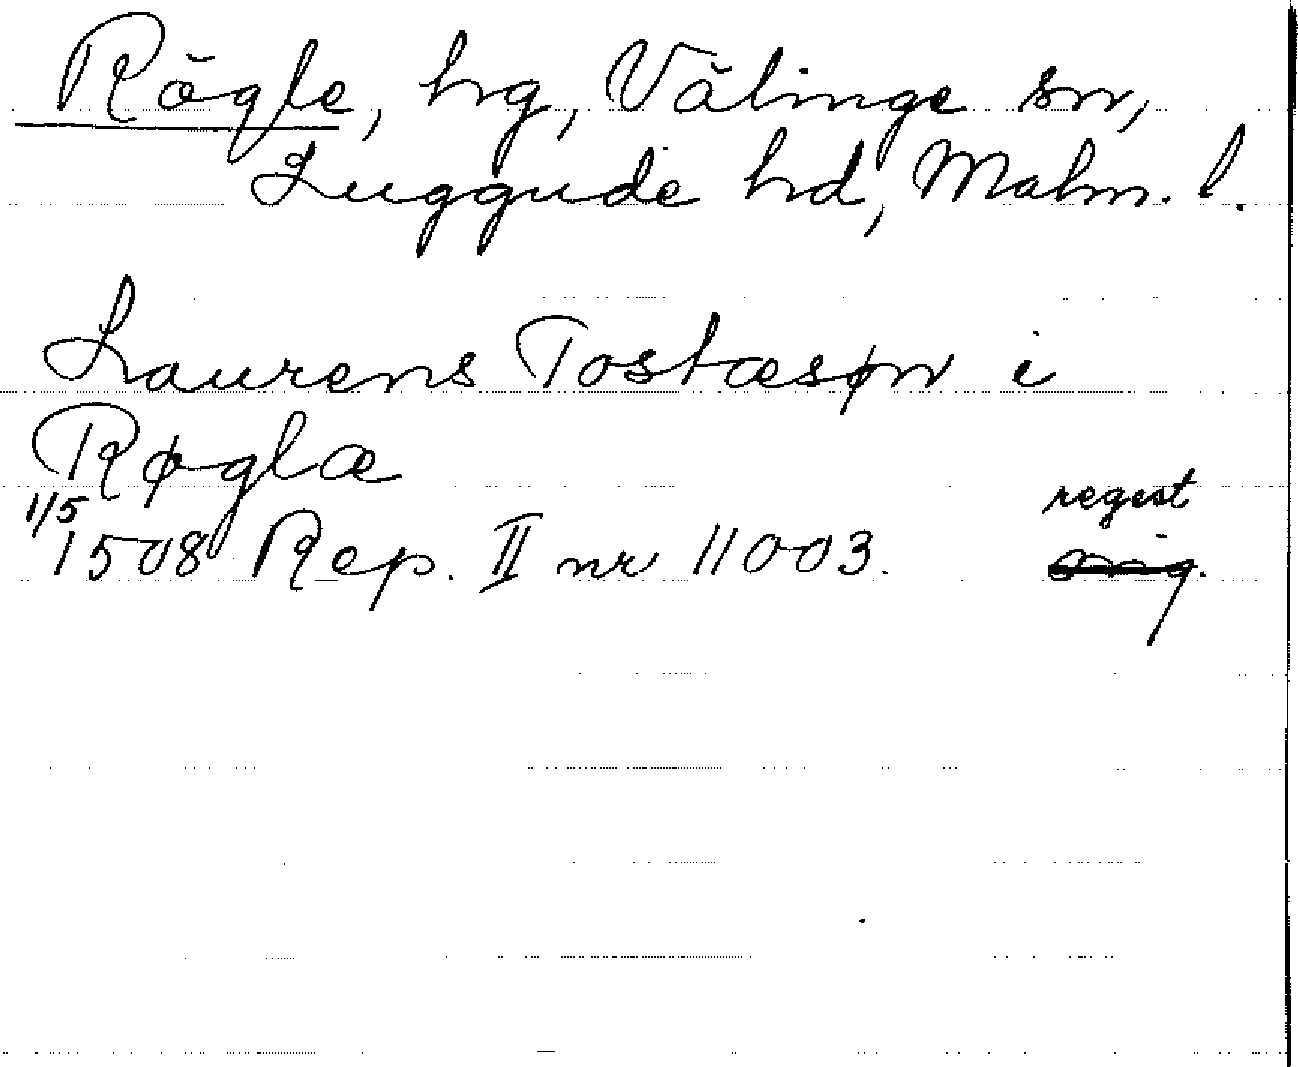 Rögle, hg, Välinge sn,
Luggude hd, Malm. l.
Laurens Tostæsøn i
Røglæ
1/5 regest
1508 Rep. II nr 11003. orig.